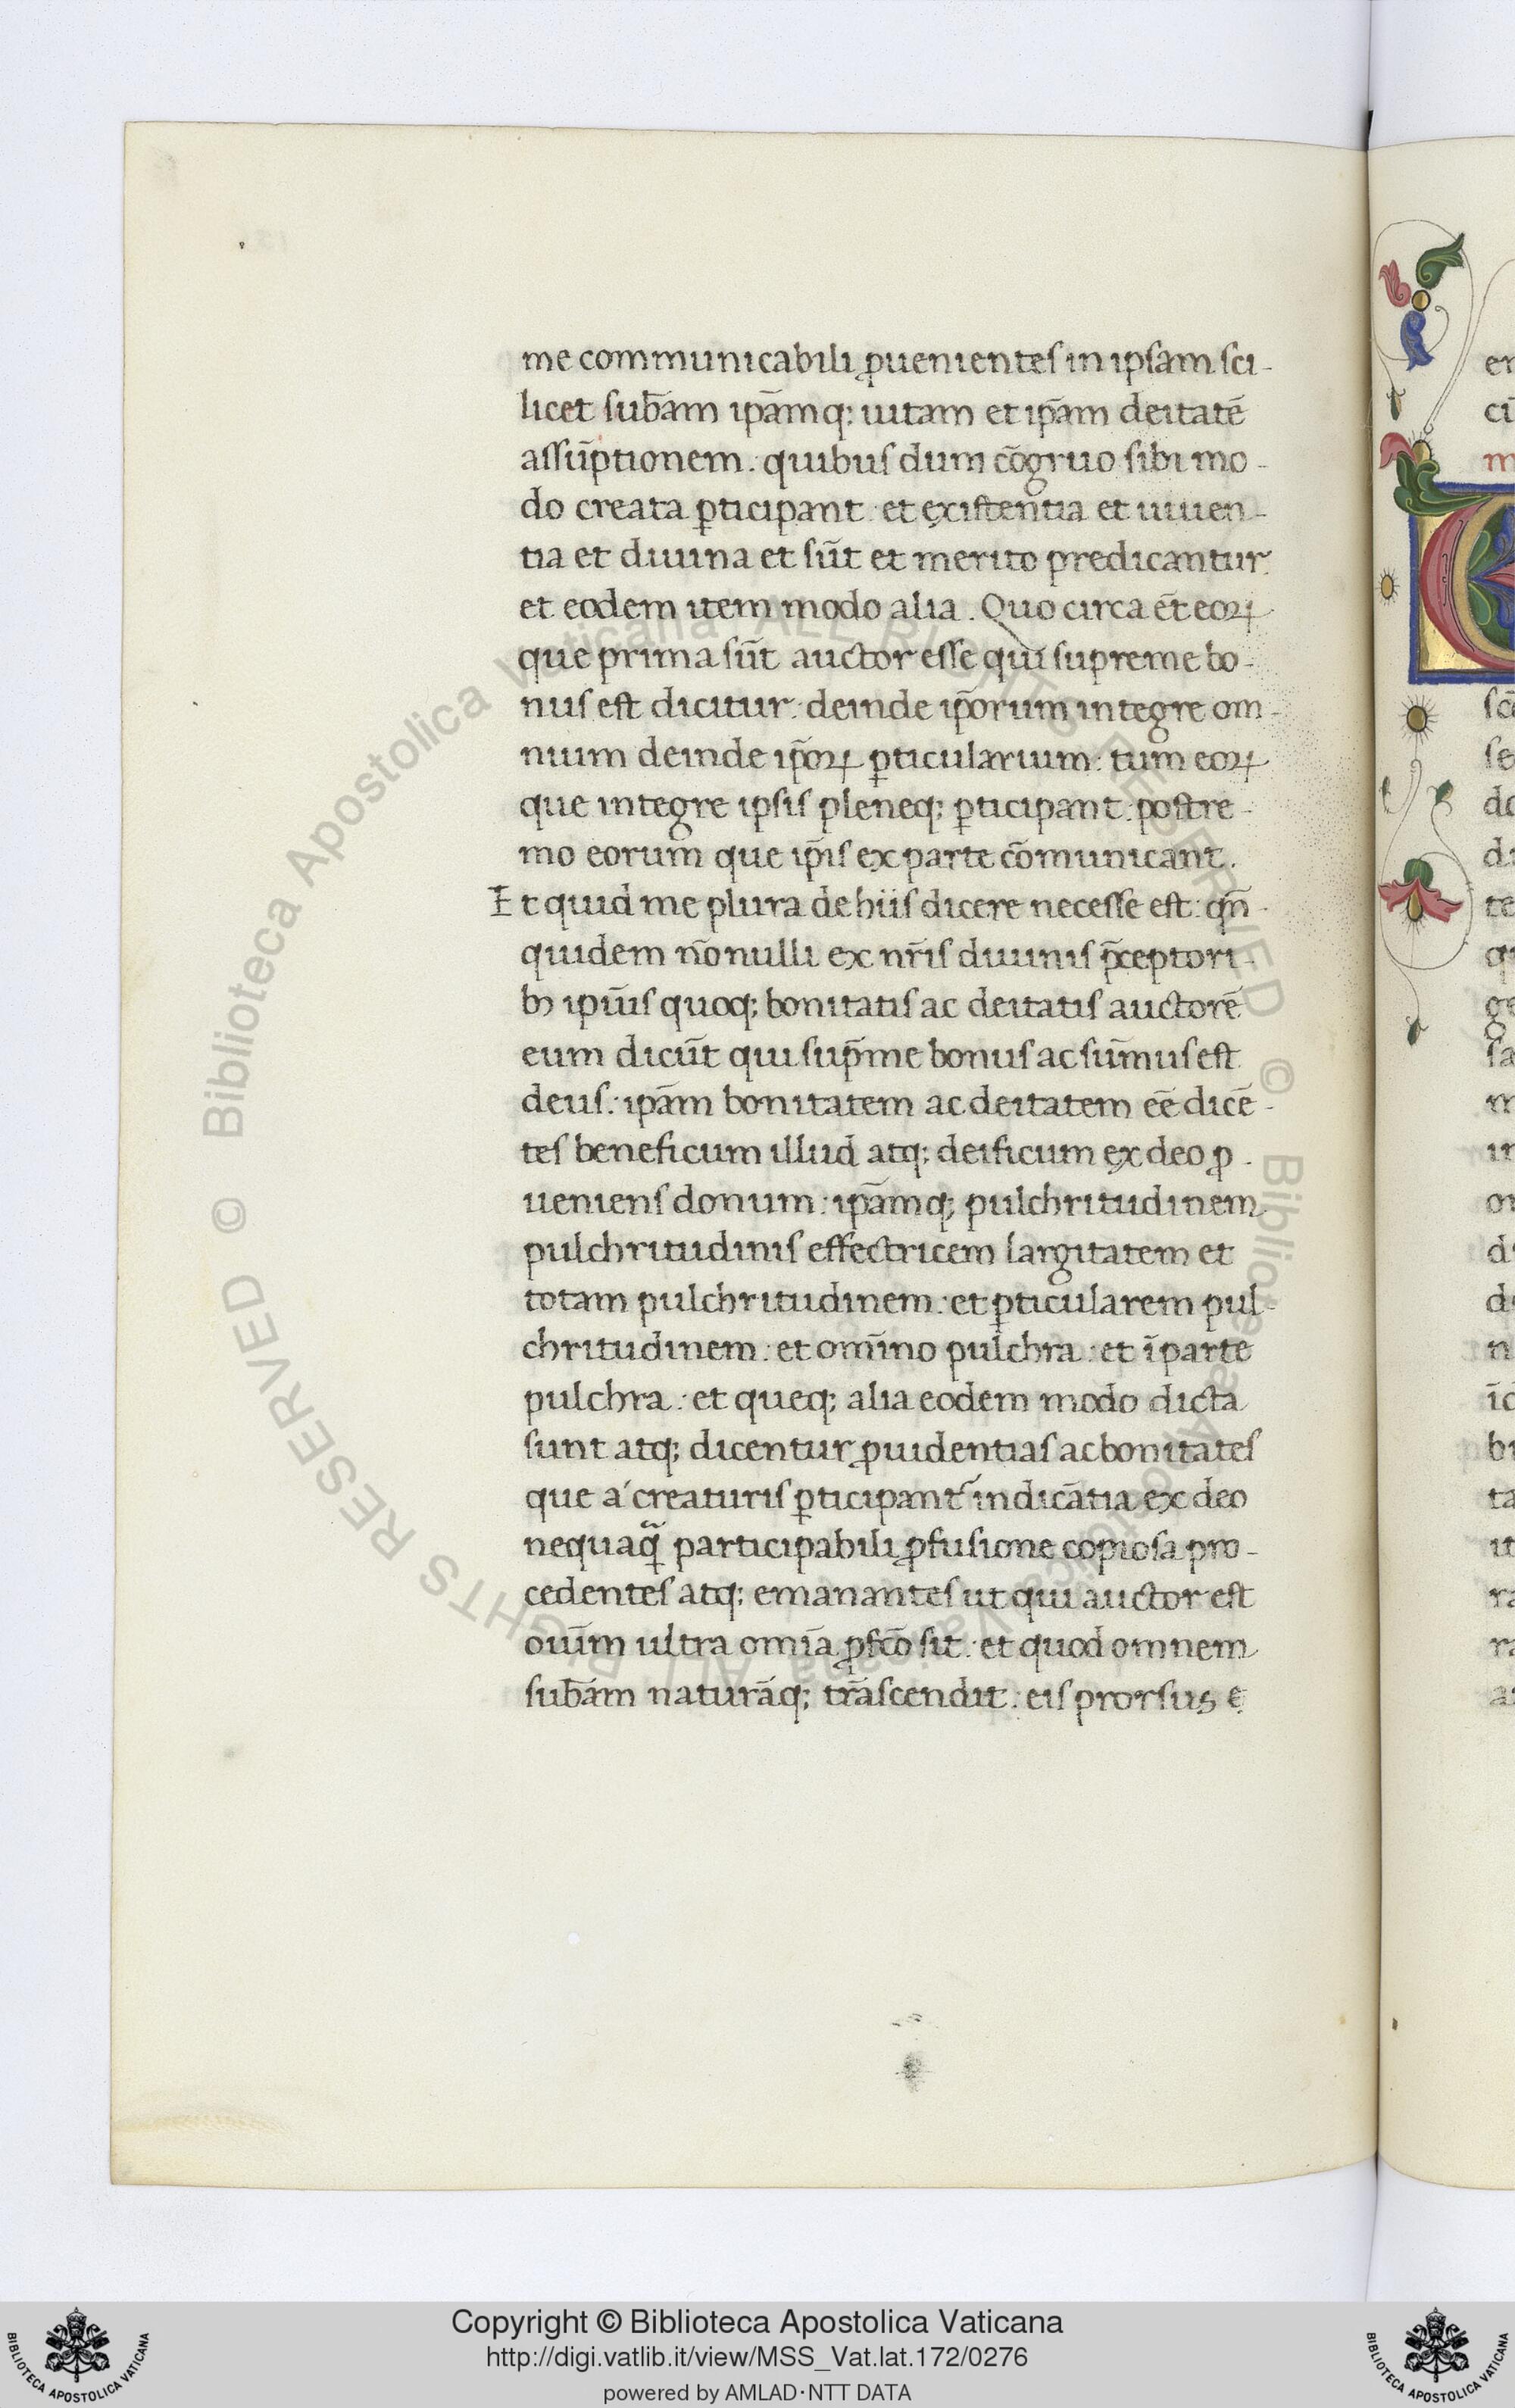 me communicabili ꝓuenientes in ipsam sci-
licet sub̄am ip̄amq; uitam et ip̄am deitatē
assūptionem: quibus dum cōgruo sibi mo-
do creata ꝑticipant: et existentia et uiuen-
tia et diuina et sūt et merito predicantur.
et eodem item modo alia. Quo circa ēt eoꝝ
que prima sūt auctor esse qui supreme bo-
nus est dicitur: deinde ip̄orum integre om-
nium deinde ip̄oꝝ ꝑticularium: tum eoꝝ
que integre ipsis pleneq; ꝑticipant: postre-
mo eorum que ip̄is ex parte cōmunicant.
Et quid me plura de hiis dicere necesse est: qn̄-
quidem nōnulli ex nr̄is diuinis p̄ceptori-
bꝫ ipīus quoq; bonitatis ac deitatis auctorē
eum dicūt qui sup̄me bonus ac sūmus est
deus: ip̄am bonitatem ac deitatem eē dicē-
tes beneficum illud atq; deificum ex deo ꝓ-
ueniens donum: ip̄amq; pulchritudinem
pulchritudinis effectricem largitatem et
totam pulchritudinem: et ꝑticularem pul-
chritudinem: et omīno pulchra: et ī parte
pulchra: et queq; alia eodem modo dicta
sunt atq; dicentur ꝓuidentias ac bonitates
que a creaturis ꝑticipant᷑ indicātia ex deo
nequaq̃ participabili ꝓfusione copiosa pro-
cedentes atq; emanantes ut qui auctor est
oiūm ultra omīa ꝓfcō sit: et quod omnem
sub̄am naturāq; trāscendit: eis prorsus e
Copyright © Biblioteca Apostolica Vaticana
http://digi.vatlib.it/view/MSS_Vat.lat.172/0276
powered by AMLAD·NTT DATA